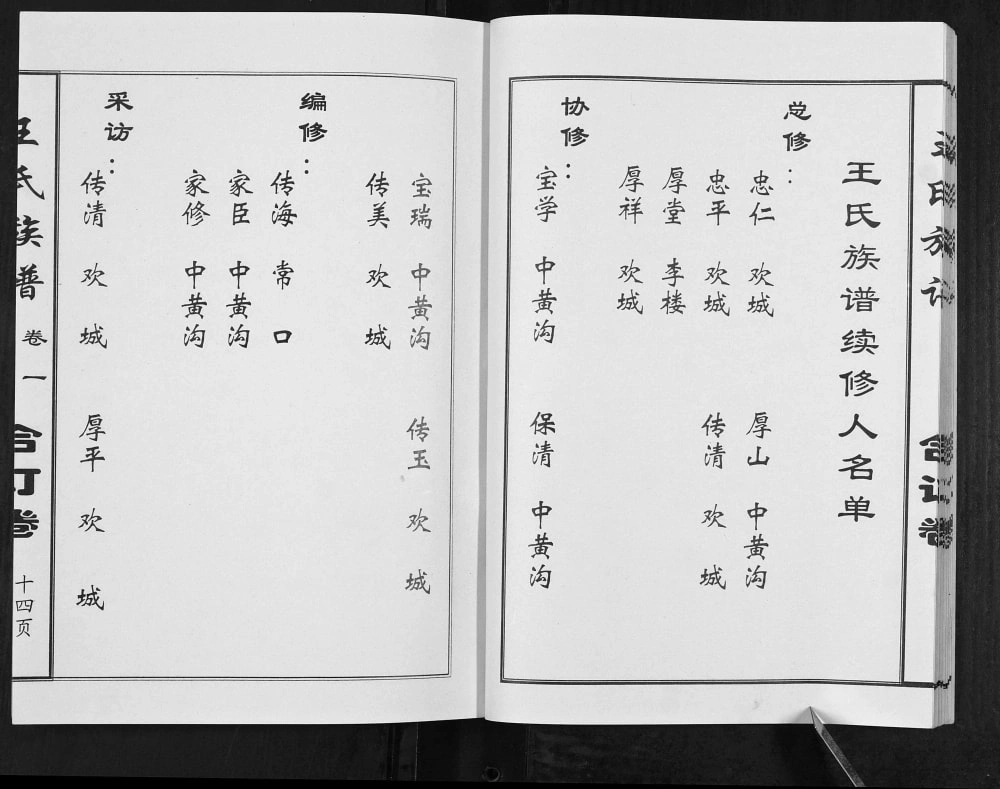 王氏族谱续修人名单
总修：
忠仁 欢城 厚山 中黄沟
忠平 欢城 传清 欢城
厚堂 李楼
厚祥 欢城
协修：
宝学 中黄沟 保清 中黄沟
宝瑞 中黄沟 传玉 欢城
传美 欢城
编修：
传海 常口
家臣 中黄沟
家修 中黄沟
采访：
传清 欢城 厚平 欢城
王氏族谱 卷一 合订卷 十四页